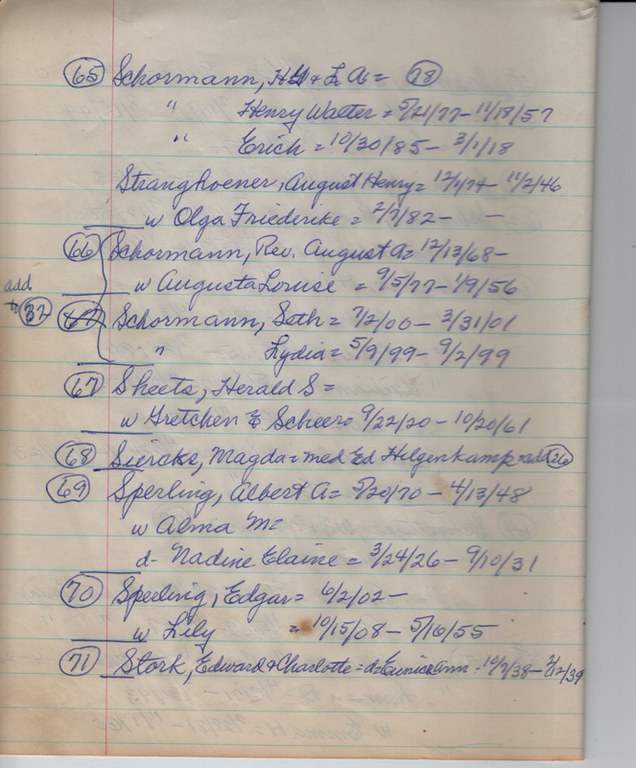 65 Schormann, H & L A = 78
" Henry Walter = 5/21/77 - 11/18/57
" Erich = 10/30/85 - 3/1/18
Stranghoener, August Henry = 12/1/74 - 11/2/46
w Olga Friederike = 2/7/82 - -
66 Schormann, Rev. August A = 12/13/68 -
w Augusta Louise = 9/5/77 - 1/9/56
add to 37 67 Schormann, Seth = 7/2/00 - 3/31/01
" Lydia = 5/9/99 - 9/2/99
67 Sheets, Herald S =
w Gretchen E Scheer = 9/22/20 - 10/20/61
68 Siercks, Magda = med Ed Hilgenkamp add 26
69 Sperling, Albert A = 5/20/70 - 4/13/48
w Alma M =
d- Nadine Elaine = 3/24/26 - 9/10/31
70 Sperling, Edgar = 6/2/02 -
w Lily = 10/15/08 - 5/16/55
71 Stork, Edward & Charlotte = d=Eunice Ann = 10/7/38 - 2/12/39